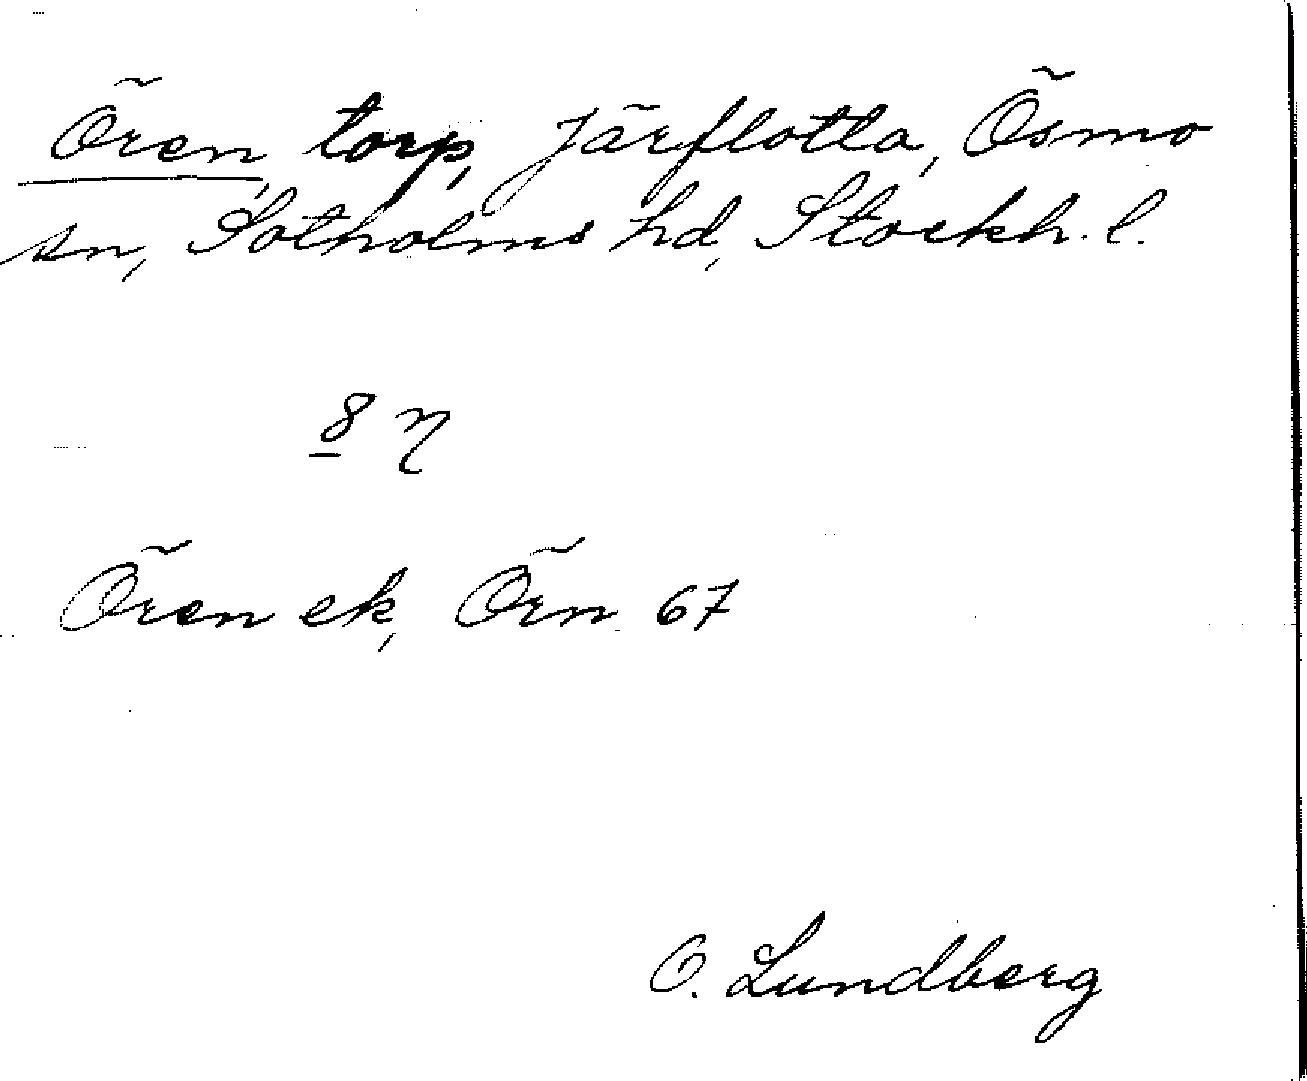 Ören, torp, Järflotta, Ösmo
sn, Sotholms hd, Stockh. l.
Ören ek, Örn 67
O. Lundberg